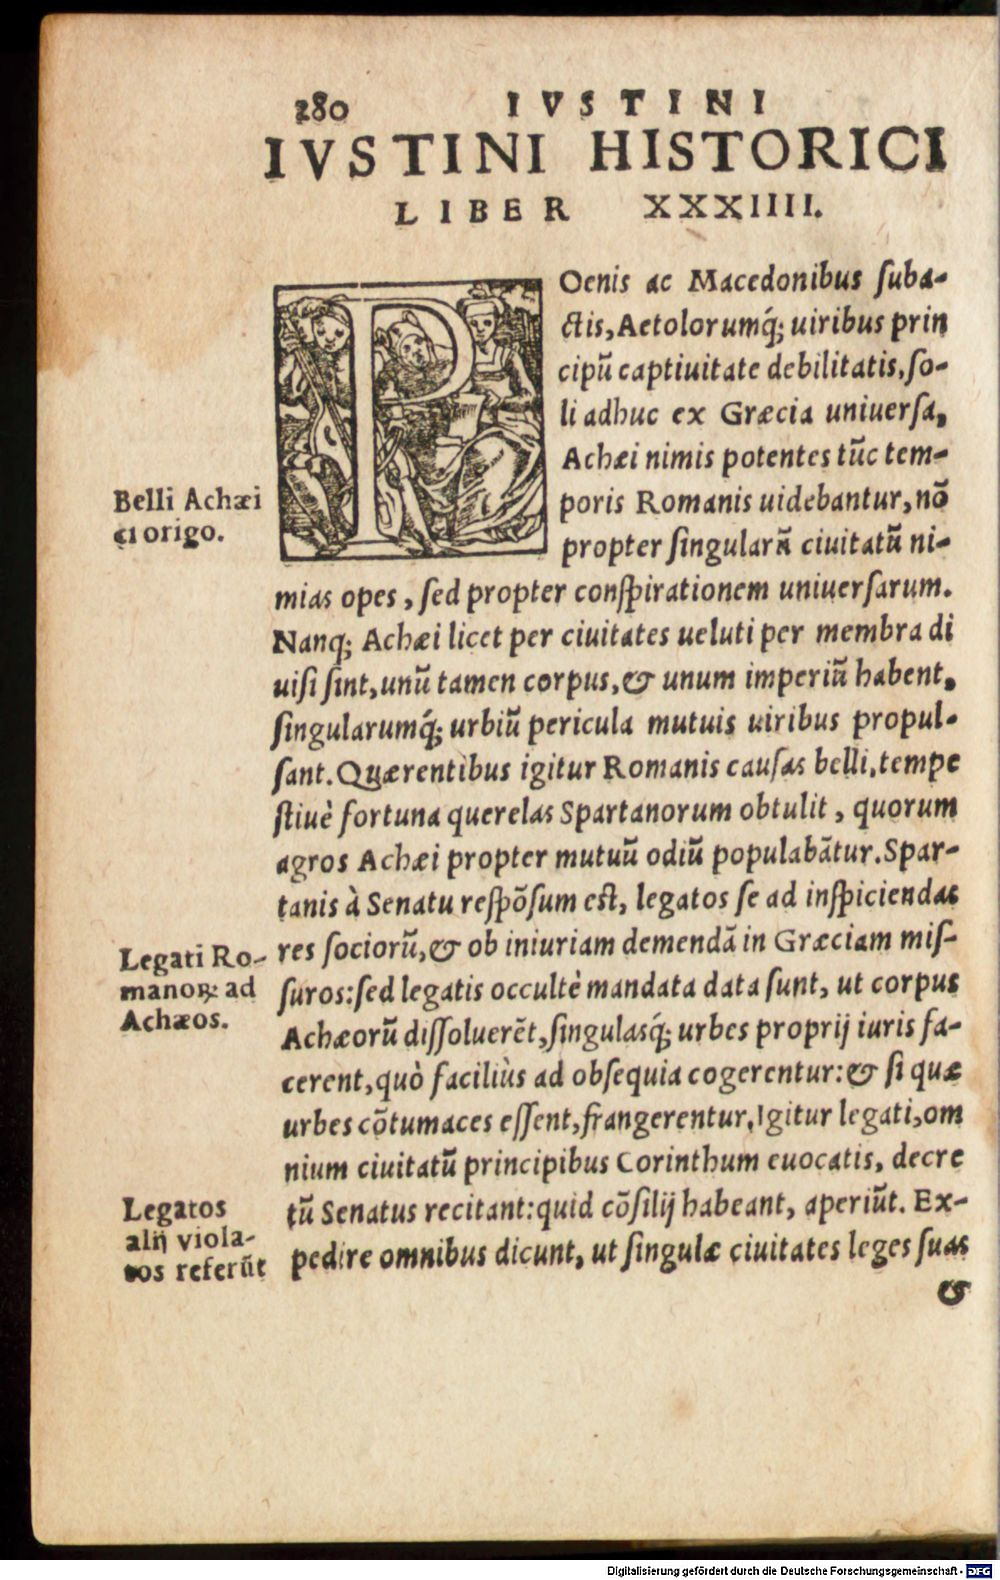 280 IVSTINI
IVSTINI HISTORICI
LIBER XXXIIII.
POenis ac Macedonibus ſuba-
ctis, Aetolorumq́; uiribus prin
cipū captiuitate debilitatis, ſo-
li adhuc ex Græcia uniuerſa,
Achæi nimis potentes tūc tem-
poris Romanis uidebantur, nō
propter ſingularū ciuitatū ni-
mias opes, ſed propter conſpirationem uniuerſarum.
Nanq; Achæi licet per ciuitates ueluti per membra di
uiſi ſint, unū tamen corpus, & unum imperiū habent,
ſingularumq́; urbiū pericula mutuis uiribus propul-
ſant. Quærentibus igitur Romanis cauſas belli, tempe
ſtiuè fortuna querelas Spartanorum obtulit, quorum
agros Achæi propter mutuū odiū populabātur. Spar-
tanis à Senatu reſpōſum eſt, legatos ſe ad inſpiciendas
res ſociorū, & ob iniuriam demendā in Græciam miſ-
ſuros: ſed legatis occultè mandata data ſunt, ut corpus
Achæorū diſſoluerēt, ſingulasq́; urbes proprij iuris fa-
cerent, quò faciliùs ad obſequia cogerentur: & ſi quæ
urbes cōtumaces eſſent, frangerentur. Igitur legati, om
nium ciuitatū principibus Corinthum euocatis, decre
tū Senatus recitant: quid cōſilij habeant, aperiūt. Ex-
pedire omnibus dicunt, ut ſingulæ ciuitates leges ſuas
&
Belli Achæi
ci origo.
Legati Ro-
manoꝝ ad
Achæos.
Legatos
alij viola-
tos referūt
Digitalisierung gefördert durch die Deutsche Forschungsgemeinschaft - DFG